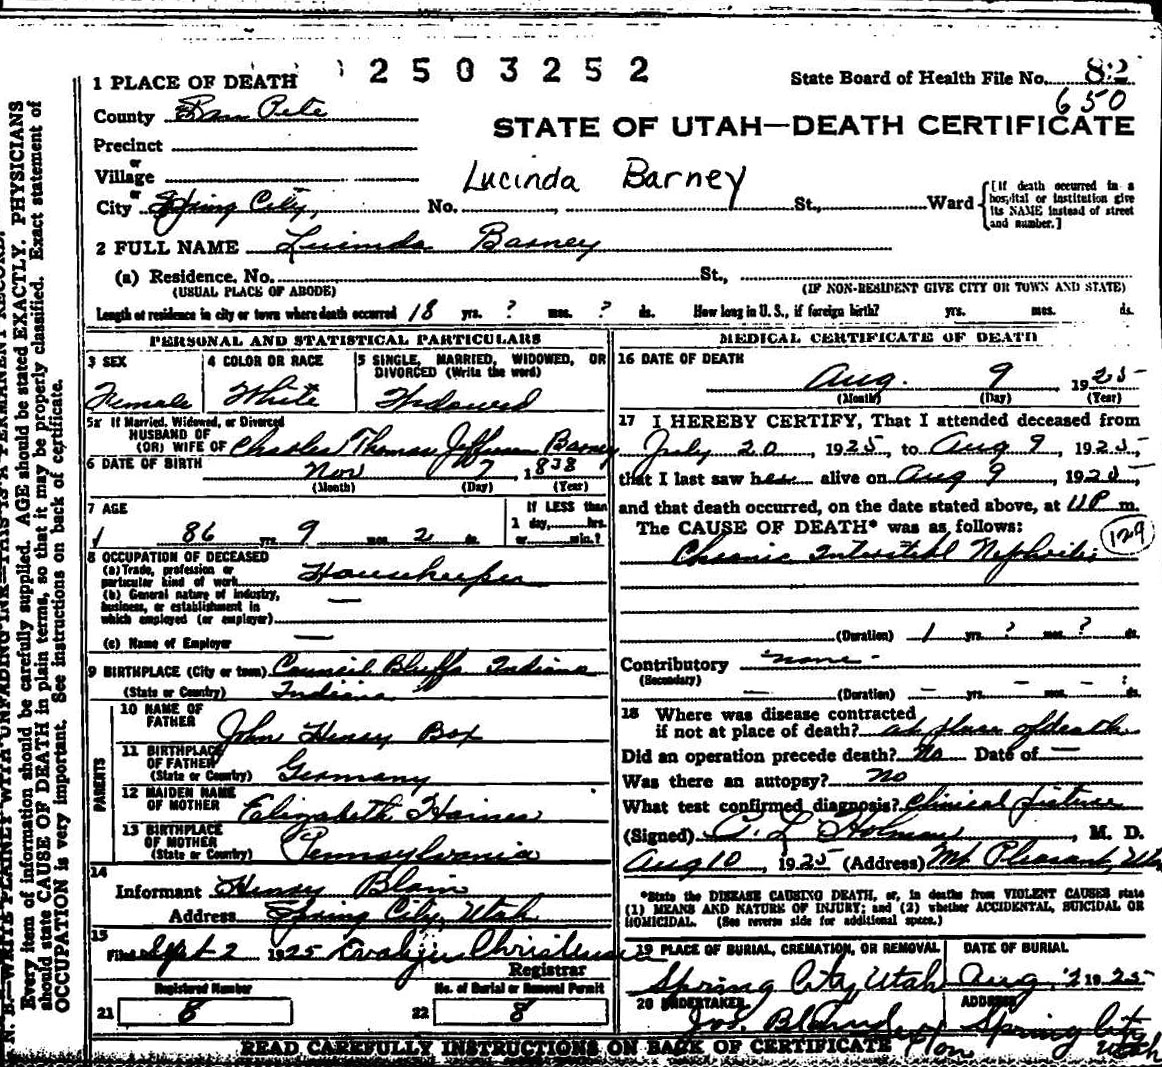 1 PLACE OF DEATH 2503252 State Board of Health File No. 82
County San Pete 650
STATE OF UTAH—DEATH CERTIFICATE
Precinct
or
Village Lucinda Barney
or
City Spring City, No. , St., Ward [If death occurred in a hospital or institution give its NAME instead of street and number.]
2 FULL NAME Lucinda Barney
(a) Residence. No. St.,
(USUAL PLACE OF ABODE) (IF NON-RESIDENT GIVE CITY OR TOWN AND STATE)
Length of residence in city or town where death occurred 18 yrs. ? mos. ? ds. How long in U. S., if foreign birth? yrs. mos. ds.
PERSONAL AND STATISTICAL PARTICULARS
3 SEX 4 COLOR OR RACE 5 SINGLE, MARRIED, WIDOWED, OR DIVORCED (Write the word)
Female White Widowed
5a If Married, Widowed, or Divorced
HUSBAND OF
(OR) WIFE OF Charles Thomas Jefferson Barney
6 DATE OF BIRTH Nov 7, 1838
(Month) (Day) (Year)
7 AGE If LESS than
1 day, hrs.
86 yrs. 9 mos. 2 ds. or min.?
8 OCCUPATION OF DECEASED
(a) Trade, profession or
particular kind of work Housekeeper
(b) General nature of industry,
business, or establishment in —
which employed (or employer)
(c) Name of Employer —
9 BIRTHPLACE (City or town) Council Bluffs Indiana
(State or Country) Indiana
PARENTS
10 NAME OF
FATHER John Henry Box
11 BIRTHPLACE
OF FATHER
(State or Country) Germany
12 MAIDEN NAME
OF MOTHER Elizabeth Haines
13 BIRTHPLACE
OF MOTHER
(State or Country) Pennsylvania
14
Informant Henry Blain
Address Spring City, Utah
15
Filed Sept 2 1925 Christensen
Registrar
Registered Number No. of Burial or Removal Permit
21 8 22 8
MEDICAL CERTIFICATE OF DEATH
16 DATE OF DEATH
Aug. 9 1925
(Month) (Day) (Year)
17 I HEREBY CERTIFY, That I attended deceased from
July 20, 1925, to Aug 9, 1925,
that I last saw her alive on Aug 9, 1925,
and that death occurred, on the date stated above, at m.
The CAUSE OF DEATH* was as follows: 129
Chronic Interstitial Nephritis
(Duration) 1 yrs. ? mos. ? ds.
Contributory none -
(Secondary)
— (Duration) — yrs. — mos. — ? ds.
18 Where was disease contracted
if not at place of death? at place of death
Did an operation precede death? No Date of —
Was there an autopsy? no
What test confirmed diagnosis? Clinical picture
(Signed) Holman, M. D.
Aug 10, 1925 (Address) Mt. Pleasant, Uta
*State the DISEASE CAUSING DEATH, or, in deaths from VIOLENT CAUSES state
(1) MEANS AND NATURE OF INJURY; and (2) whether ACCIDENTAL, SUICIDAL OR
HOMICIDAL. (See reverse side for additional space.)
19 PLACE OF BURIAL, CREMATION, OR REMOVAL DATE OF BURIAL
Spring City, Utah Aug. 1925
20 UNDERTAKER ADDRESS
Jos. Spring City
Utah
READ CAREFULLY INSTRUCTIONS ON BACK OF CERTIFICATE
N. B.—WRITE PLAINLY WITH UNFADING INK—THIS IS A PERMANENT RECORD.
Every item of information should be carefully supplied. AGE should be stated EXACTLY. PHYSICIANS
should state CAUSE OF DEATH in plain terms, so that it may be properly classified. Exact statement of
OCCUPATION is very important. See instructions on back of certificate.